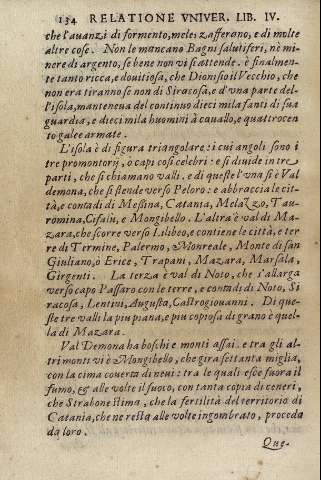 134 RELATIONE VNIVER. LIB. IV.
che l'auanzi di formento, mele: zafferano, e di molte
altre cose. Non le mancano Bagni salutiferi, nè mi
niere di argento, se bene non vi s'attende. è finalmen-
te tanto ricca, e douitiosa, che Dionisio il Vecchio, che
non era tiranno se non di Siracosa, e d'vna parte del-
l'isola, manteneua del continuo dieci mila fanti di sua
guardia, e dieci mila huomini à cauallo, e quattrocen
to galee armate.
L'isola è di figura triangolare: i cui angoli sono i
tre promontorij, ò capi così celebri: e si diuide in tre
parti, che si chiamano valli. e di queste l'vna si è Val
demona, che si stende verso Peloro: e abbraccia le cit-
tà, e contadi di Messina, Catania, Melazzo, Tau-
romina, Cifalù, e Mongibello. L'altra è val di Ma-
zara, che scorre verso Lilibeo, e contiene le città, e ter
re di Termine, Palermo, Monreale, Monte di san
Giuliano, ò Erice, Trapani, Mazara, Marsala,
Girgenti. La terza è val di Noto, che s'allarga
verso capo Passaro con le terre, e contadi di Noto, Si
racosa, Lentini, Augusta, Castrogiouanni. Di que-
ste tre valli la piu piana, e piu copiosa di grano è quel-
la di Mazara.
Val Demona ha boschi e monti assai. e tra gli al-
tri monti vi è Mongibello, che gira settanta miglia,
con la cima couerta di neui: tra le quali esce fuora il
fumo, & alle volte il fuoco, con tanta copia di ceneri,
che Strabone stima, che la fertilità del territorio di
Catania, che ne resta alle volte ingombrato, proceda
da loro.
Que-